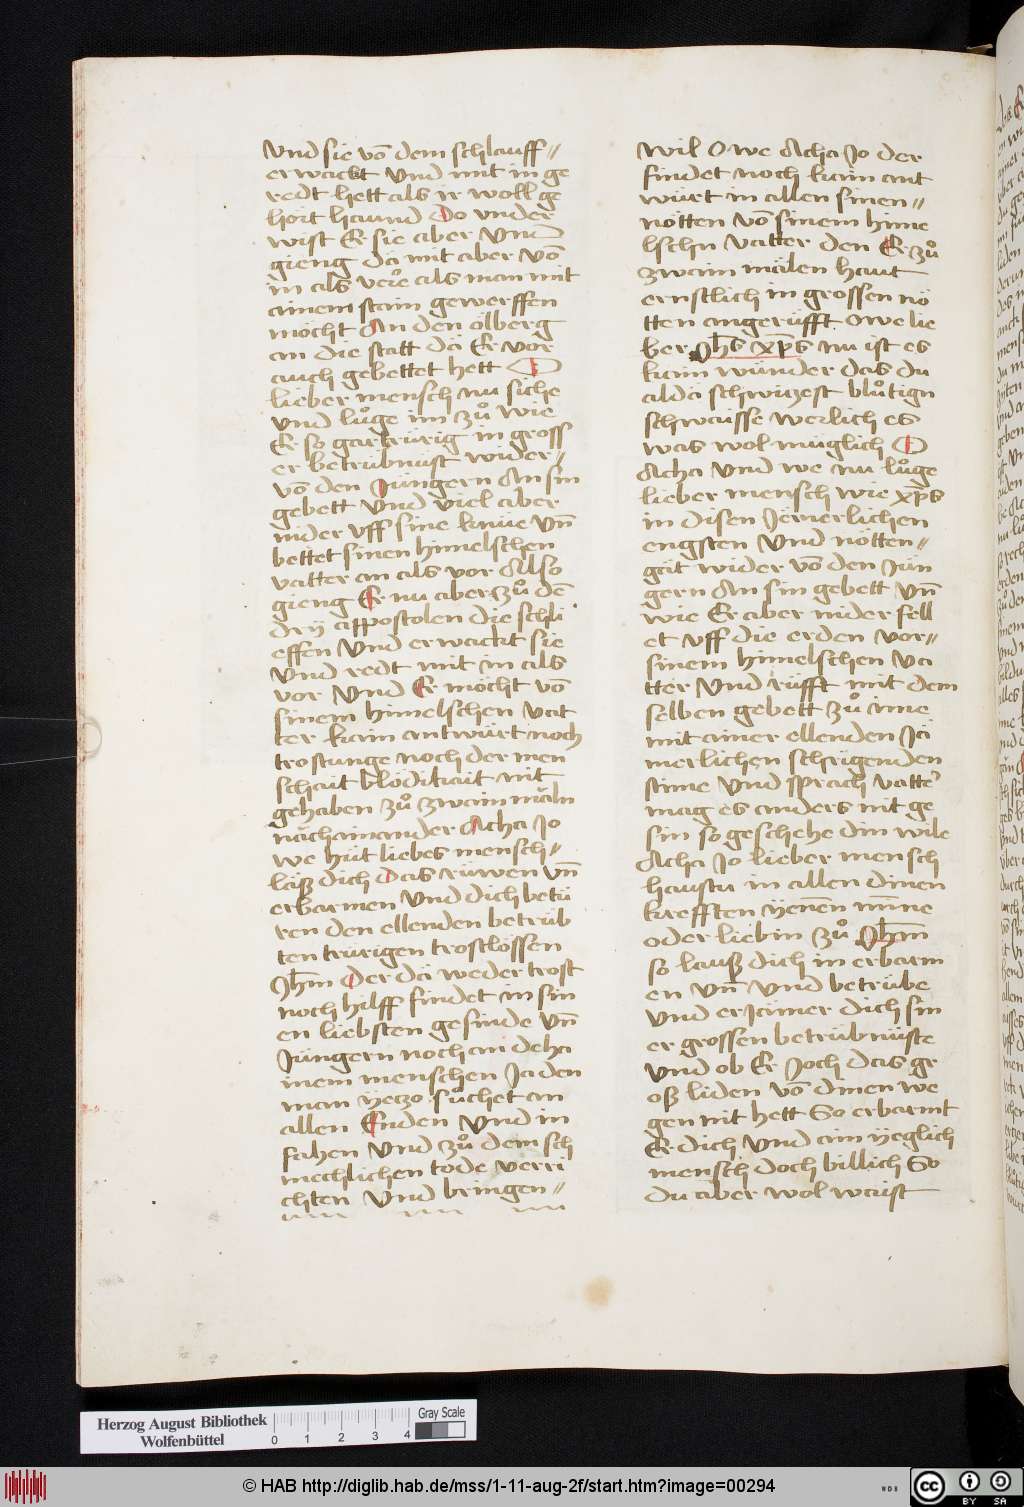 Vnd sie vō dem schlauff〃
erwackt Vnd mit in ge
redt hett als ir woll ge
hört haund Do vnder
wist Er sie aber Vnd
gieng dā mit aber vō
in als verͦ als man mit
ainem stain gewerffen
möcht An den ölberg
an die statt dā Er vor
auch gebettet hett O
lieber mensch nu siche
Vnd luͦge im zuͦ wie
Er so gar trürig in gross
er betrübnüst wider〃
vō den Jüngern An sin
gebett Vnd viel aber
nider vff sine knüe Vn̄
bettet sinen himelschen
vatter an als vor Also
gieng Er nu aber zuͦ dē
drÿ appostolen die schlā
effen Vnd erwackt sie
Vnd redt mit in als
vor Vnd Er möcht vō
sinem himelschen vat
ter kain antwürt noch
trostunge noch der men
schait blödikait nit
gehaben zuͦ zwain māln
nāchainander Acha Jo
we hüt liebes mensch〃
lāß dich das rüwen vn̄
erbarmen Vnd dich betü
ren den ellenden betrüb
ten trürigen trostlössen
Jhm̄ Der dā weder trost
noch hilff findet in sin
en liebsten gesinde Vn̄
Jüngern noch an deha
inem menschen Ja den
man ÿeczo suͦchet an
allen Enden Vnd in
fahen Vnd zuͦ dem sch
mechlichen tode verri
chten Vnd bringen〃
wil O we Acha Jo der
findet noch kain ant
würt in allen sinen〃
nötten vō sinem hime
lschn vatter den Er zuͦ
zwain mālen haut
ernstlich in grossen nö
tten angerüfft Owe lie
ber Jhs̄ xp̄s nu ist es
kain wünder das du
aldā schwiczest bluͦtign
schwaisse werlich es
was wol müglich O
Acha Vnd we nu luͦge
lieber mensch wie xp̄s
in disen Jēmerlichen
engsten Vnd nötten〃
gāt wider vō den Jün
gern An sin gebett Vn̄
wie Er aber nider fell
et vff die erden vor〃
sinem himelschen va
tter Vnd rüfft mit dem
selben gebett zuͦ ime
mit ainer ellenden Jā
merlichen schrigenden
stime Vnd sprach vatter
mag es anders nit ge
sin so geschehe din wile
Acha Jo lieber mensch
haustu in allen dinen
krefften ÿenen mīne
oder liebin zuͦ Jhm̄
so lauß dich in erbarm
en vn̄ Vnd betrübe
Vnd erJāmer dich sin
er grossen betrübnüste
Vnd ob Er Joch das gr
oß liden vō dinen we
gen nit hett So erbarmt
Er dich Vnd aim ÿeglich
mensch doch billich So
du aber wol waist
Herzog August Bibliothek
Wolfenbüttel
0 1 2 3 4
Gray Scale
© HAB http://diglib.hab.de/mss/1-11-aug-2f/start.htm?image=00294
WDB
cc BY SA